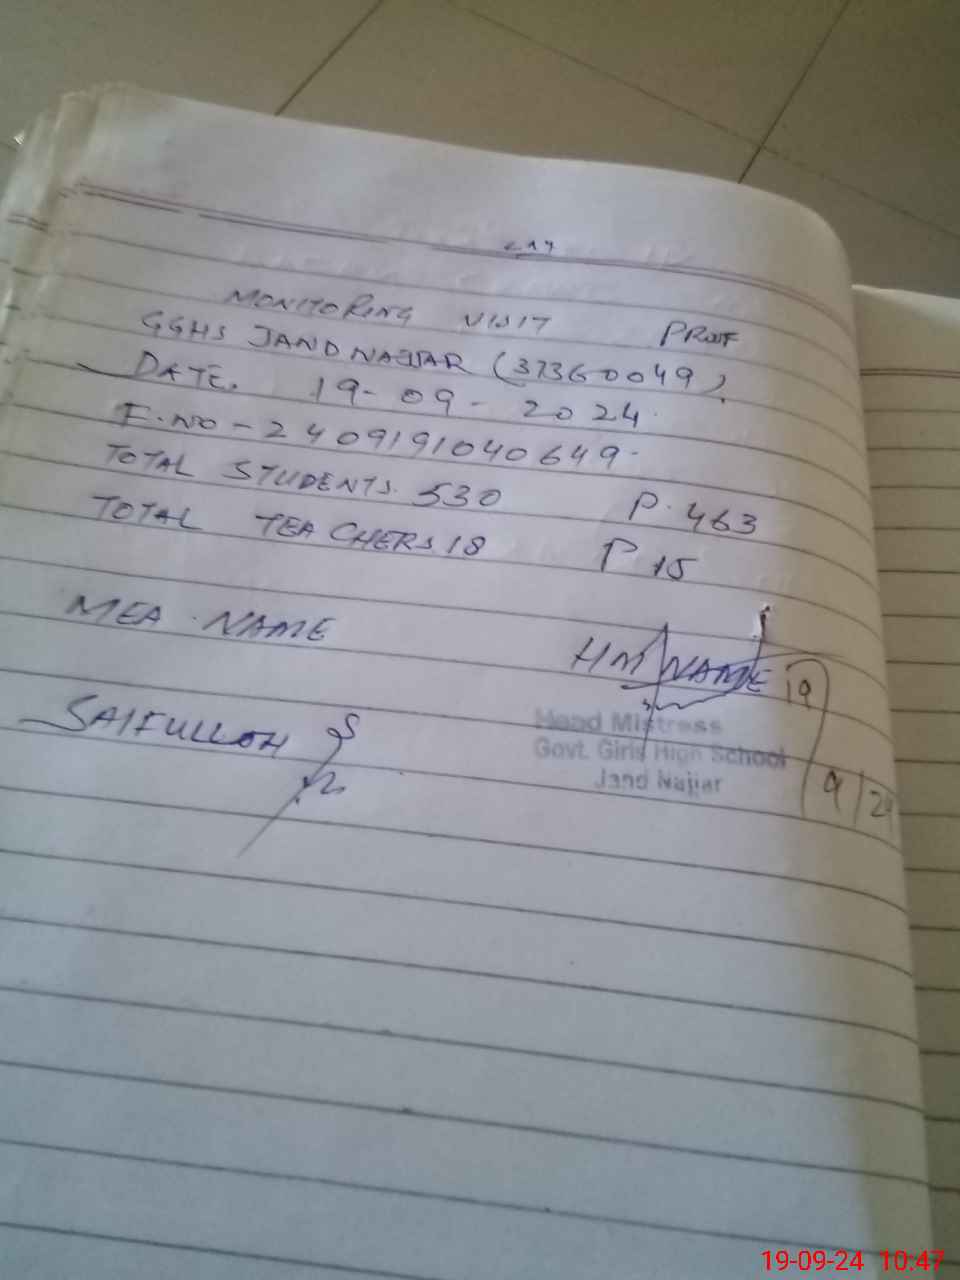 MONITORING VISIT PROOF
GGHS JAND NAJJAR (37360049)
DATE. 19-09-2024.
F.NO-2409191040649-
TOTAL STUDENTS. 530 P.463
TOTAL TEACHERS 18 P 15
MEA NAME
HM NAME
SAIFULLOH
19/9/24
Head Mistress
Govt. Girls High School
Jand Najjar
19-09-24 10:47